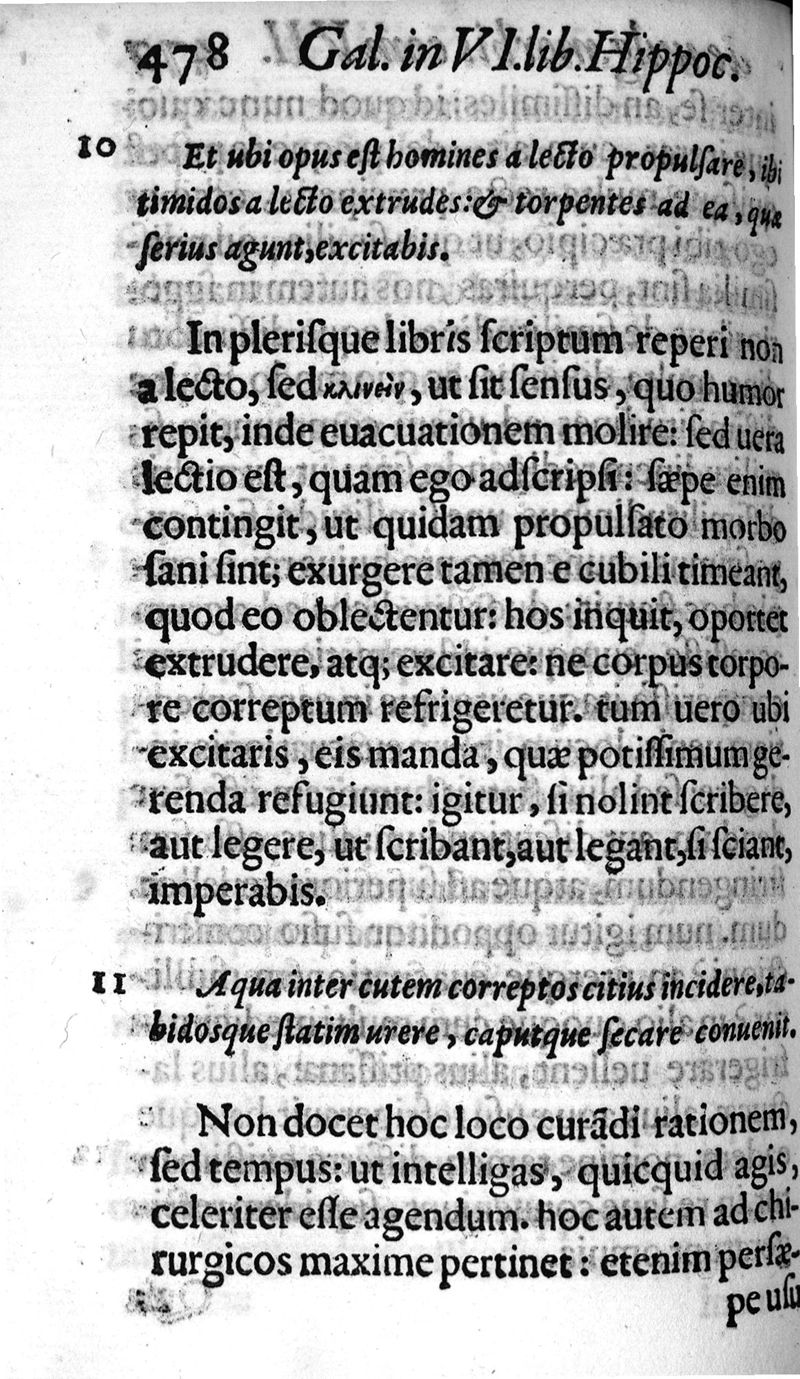 478 Gal. in VI. lib. Hippoc.
10 Et ubi opus est homines a lecto propulsare, ibi
timidos a lecto extrudes: & torpentes ad ea, quæ
serius agunt, excitabis.
In plerisque libris scriptum reperi non
a lecto, sed κλινεῖν, ut sit sensus, quo humor
repit, inde euacuationem molire: sed uera
lectio est, quam ego adscripsi: sæpe enim
contingit, ut quidam propulsato morbo
sani sint; exurgere tamen e cubili timeant,
quod eo oblectentur: hos inquit, oportet
extrudere, atq; excitare: ne corpus torpo-
re correptum refrigeretur. tum uero ubi
excitaris, eis manda, quæ potissimum ge-
renda refugiunt: igitur, si nolint scribere,
aut legere, ut scribant, aut legant, si sciant,
imperabis.
11 Aqua inter cutem correptos citius incidere, ta-
bidosque statim urere, caputque secare conuenit.
Non docet hoc loco curādi rationem,
sed tempus: ut intelligas, quicquid agis,
celeriter esse agendum. hoc autem ad chi-
rurgicos maxime pertinet: etenim persæ-
pe usu